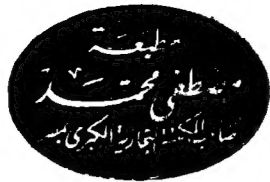 مطبعة
مصطفى محمد
صاحب المكتبة التجارية الكبرى بمصر